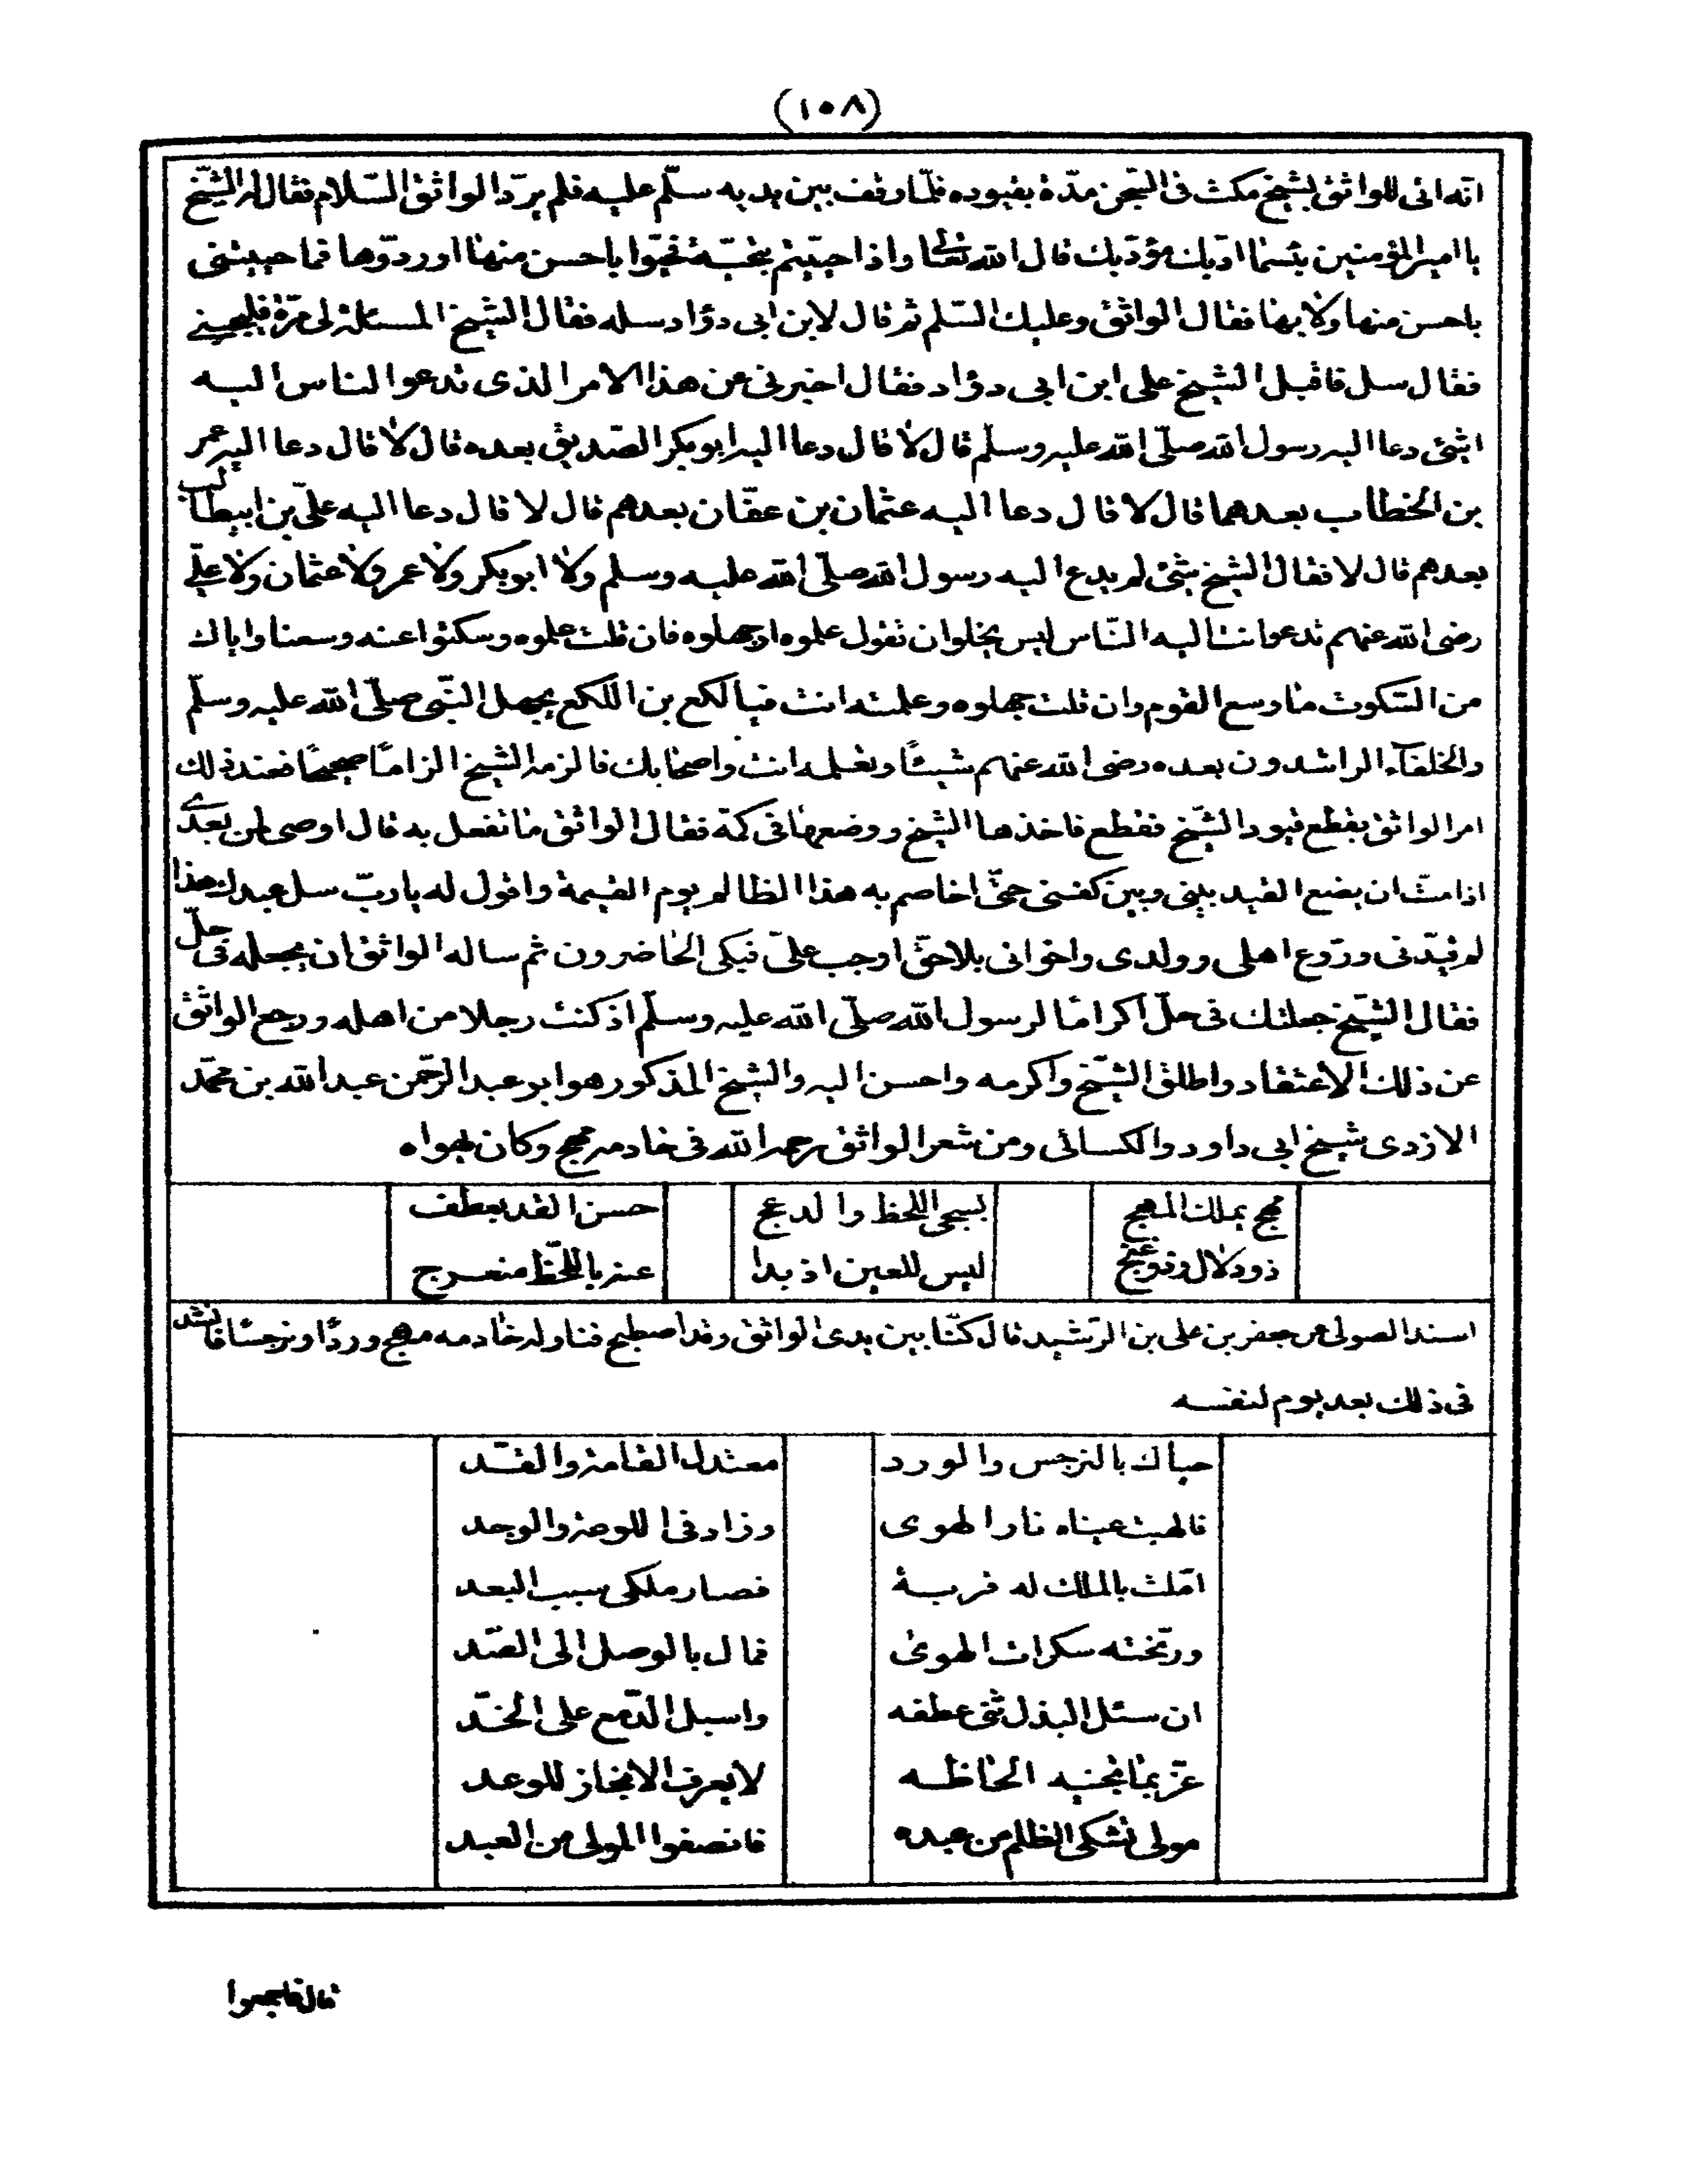 (١٠٨)
انّه اتى للواثق بشيخ مكث فى السّجن مدّة بقيوده فلمّا وقف بين يديه سلّم عليه فلم يردّ الواثق السّلام فقال له الشّيخ
يا امير المؤمنين بئسما ادّبك مؤدّبك قال الله تعالى واذا حيّيتم بتحيّة فحيّوا باحسن منها او ردّوها فما حييتنى
باحسن منها ولا بها فقال الواثق وعليك السّلم ثم قال لابن ابى دؤاد سله فقال الشيخ المسئلة لى مرة فليجبنے
فقال سل فاقبل الشيخ على ابن ابى دؤاد فقال اخبرنى عن هذا الامر الذى تدعو الناس اليه
اشئ دعا اليه رسول الله صلّى الله عليه وسلّم قال لا قال دعا اليه ابو بكر الصّديق بعده قال لا قال دعا اليه عمر
بن الخطاب بعدهما قال لا قال دعا اليه عثمان بن عفّان بعدهم قال لا قال دعا اليه علىّ بن ابيطالب
بعدهم قال لا فقال الشيخ بشئ لم يدع اليه رسول الله صلّى الله عليه وسلم ولا ابو بكر ولا عمر ولا عثمان ولا علىّ
رضى الله عنهم تدعو انت اليه النّاس ليس يخلو ان تقول علموه او جهلوه فان قلت علموه وسكتوا عنه وسعنا واياك
من السّكوت ما وسع القوم وان قلت جهلوه وعلمته انت فيا لكع بن اللكع يجهل النّبى صلّى الله عليه وسلّم
والخلفآء الراشدون بعده رضى الله عنهم شيئًا وتعلمه انت واصحابك فالزمه الشيخ الزامًا صحيحًا فعند ذلك
امر الواثق بقطع قيود الشّيخ فقطع فاخذها الشّيخ ووضعها فى كمّه فقال الواثق ما تفعل به قال اوصى لمن بعدے
اذا متّ ان يضع القيد بينى وبين كفنى حتّى اخاصم به هذا الظالم يوم القيمة واقول له يا ربّ سل عبدك هذا
لم قيّدنى وروّع اهلى وولدى واخوانى بلا حقّ اوجب علىّ فبكى الحاضرون ثم ساله الواثق ان يجعله فى حلّ
فقال الشّيخ جعلتك فى حلّ اكرامًا لرسول الله صلّى الله عليه وسلّم اذ كنت رجلا من اهله ورجع الواثق
عن ذلك الاعتقاد واطلق الشّيخ واكرمه واحسن اليه والشيخ المذكور هو ابو عبد الرّحمن عبد الله بن محمّد
الازدى شيخ ابى داود والكسائى ومن شعر الواثق رحمه الله فى خادمه مهج وكان يهواه
مهج يملك المهج بسجى اللحظ والدعج حسن القد يعطف
ذو دلال وذو غنج ليس للعين اذ بدا عنه باللّحظ منعرج
اسند الصولى عن جعفر بن على بن الرّشيد قال كنّا بين يدى الواثق وقد اصطبح فناوله خادمه مهج وردًا ونرجسًا فانشد
فى ذلك بعد يوم لنفسه
حياك بالنرجس والورد معتدل القامة والقدّ
فالهبت عيناه نار الهوى وزاد فى اللوعة والوجد
امّلت بالملك له قربة فصار ملكى سبب البعد
ورنّحته سكرات الهوى فمال بالوصل الى الصّد
ان سئل البذل ثنى عطفه واسبل الدّمع على الخدّ
غرّ بما تجنيه الحاظه لا يعرف الانجاز للوعد
مولى تشكى الظلم من عبده فانصفوا المولى من العبد
قال فاجمعوا